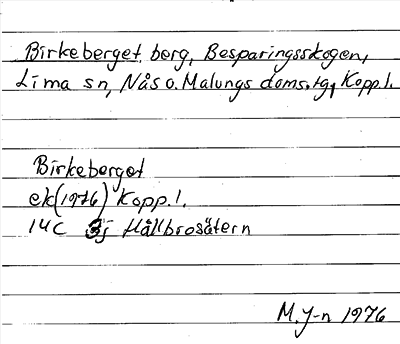 Birkeberget, berg, Besparingsskogen,
Lima sn, Nås o. Malungs doms.tg, Kopp.l.
Birkeberget
ek (1976) Kopp.l.
14C 3j Hållbrosätern
M.J-n 1976